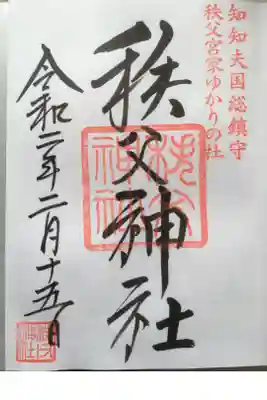 知知夫国総鎮守
秩父宮家ゆかりの社
秩父神社
令和二年二月十五日
秩父神社